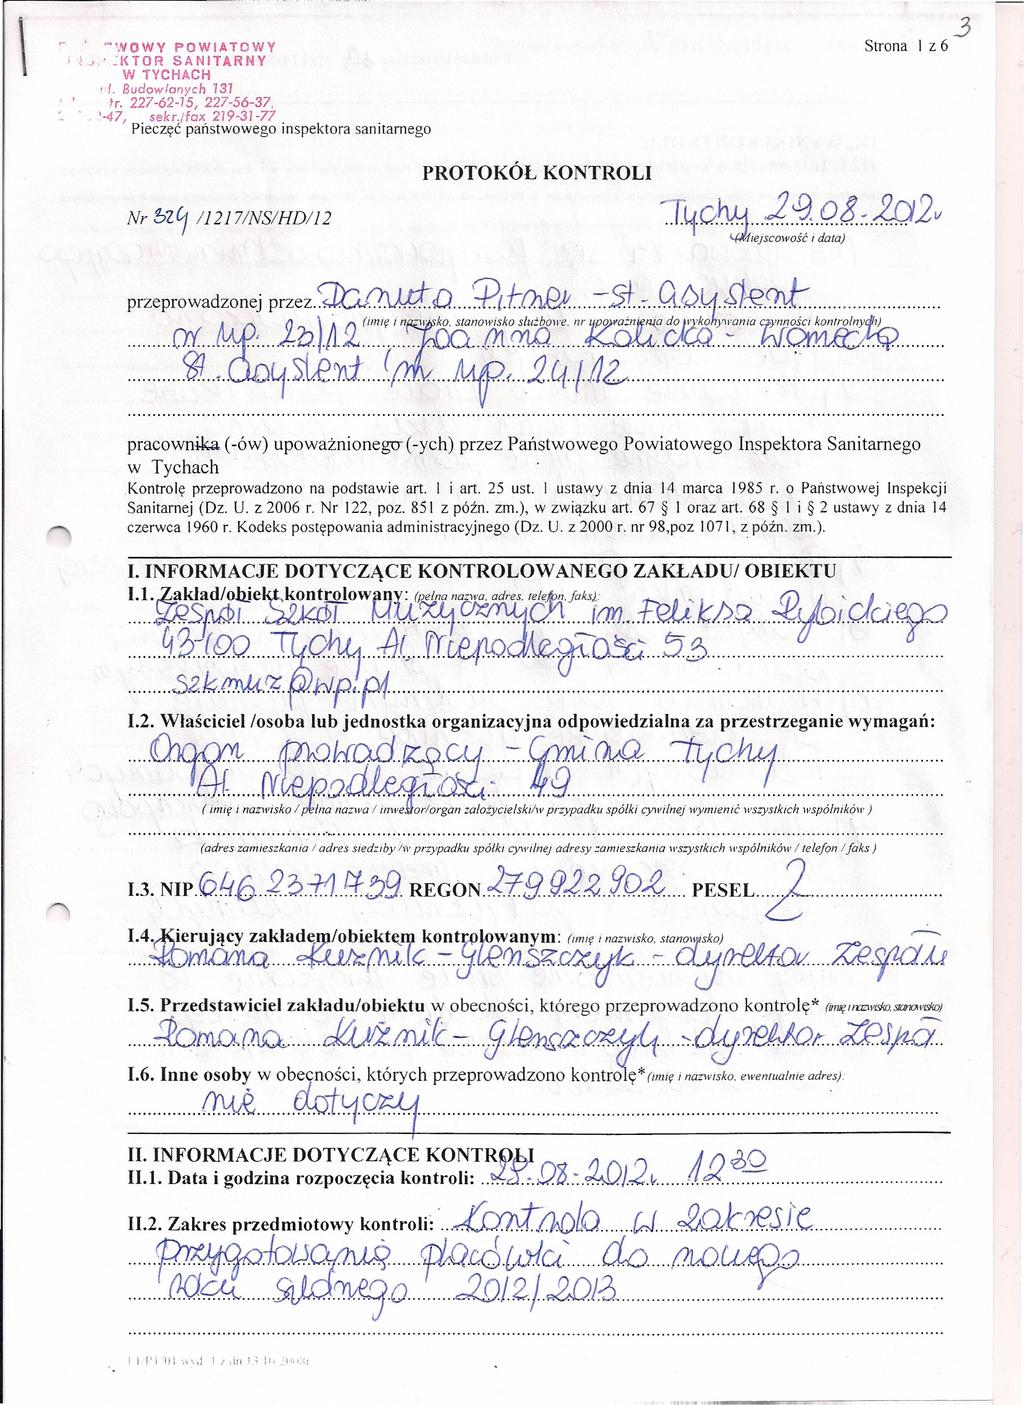 3
Strona 1 z 6
WOWY POWIATOWY
KTOR SANITARNY
W TYCHACH
ul. Budowlanych 131
tr. 227-62-15, 227-56-37,
-47, sekr./fax 219-31-77
Pieczęć państwowego inspektora sanitarnego
PROTOKÓŁ KONTROLI
Nr 324 /1217/NS/HD/12
Tychy 29.08.2012r
(Miejscowość i data)
przeprowadzonej przez Danuta Pitner - st. asystent
(imię i nazwisko, stanowisko służbowe, nr upoważnienia do wykonywania czynności kontrolnych)
nr up. 23/12 Joanna
St. asystent nr up. 24/12
pracownika (-ów) upoważnionego (-ych) przez Państwowego Powiatowego Inspektora Sanitarnego
w Tychach
Kontrolę przeprowadzono na podstawie art. 1 i art. 25 ust. 1 ustawy z dnia 14 marca 1985 r. o Państwowej Inspekcji
Sanitarnej (Dz. U. z 2006 r. Nr 122, poz. 851 z późn. zm.), w związku art. 67 § 1 oraz art. 68 § 1 i § 2 ustawy z dnia 14
czerwca 1960 r. Kodeks postępowania administracyjnego (Dz. U. z 2000 r. nr 98,poz 1071, z późn. zm.).
I. INFORMACJE DOTYCZĄCE KONTROLOWANEGO ZAKŁADU/ OBIEKTU
I.1. Zakład/obiekt kontrolowany: (pełna nazwa, adres, telefon, faks):
Zespół Szkół Muzycznych im. Feliksa Rybickiego
43-100 Tychy Al. Niepodległości 53
szkmuz@wp.pl
I.2. Właściciel /osoba lub jednostka organizacyjna odpowiedzialna za przestrzeganie wymagań:
Organ prowadzący - Gmina Tychy
Al. Niepodległości 49
( imię i nazwisko / pełna nazwa / inwestor/organ założycielski/w przypadku spółki cywilnej wymienić wszystkich wspólników )
(adres zamieszkania / adres siedziby /w przypadku spółki cywilnej adresy zamieszkania wszystkich wspólników / telefon / faks )
I.3. NIP 646 23 71 739 REGON 279922902 PESEL
I.4. Kierujący zakładem/obiektem kontrolowanym: (imię i nazwisko, stanowisko)
Romana Kuźnik - Glenszczyk - dyrektor Zespołu
I.5. Przedstawiciel zakładu/obiektu w obecności, którego przeprowadzono kontrolę* (imię i nazwisko, stanowisko)
Romana Kuźnik - Glenszczyk - dyrektor Zespoł
I.6. Inne osoby w obecności, których przeprowadzono kontrolę* (imię i nazwisko, ewentualnie adres):
nie dotyczy
II. INFORMACJE DOTYCZĄCE KONTROLI
II.1. Data i godzina rozpoczęcia kontroli: 29.08.2012r. 12 30
II.2. Zakres przedmiotowy kontroli: Kontrola w zakresie
przygotowania placówki do nowego
roku szkolnego 2012/2013